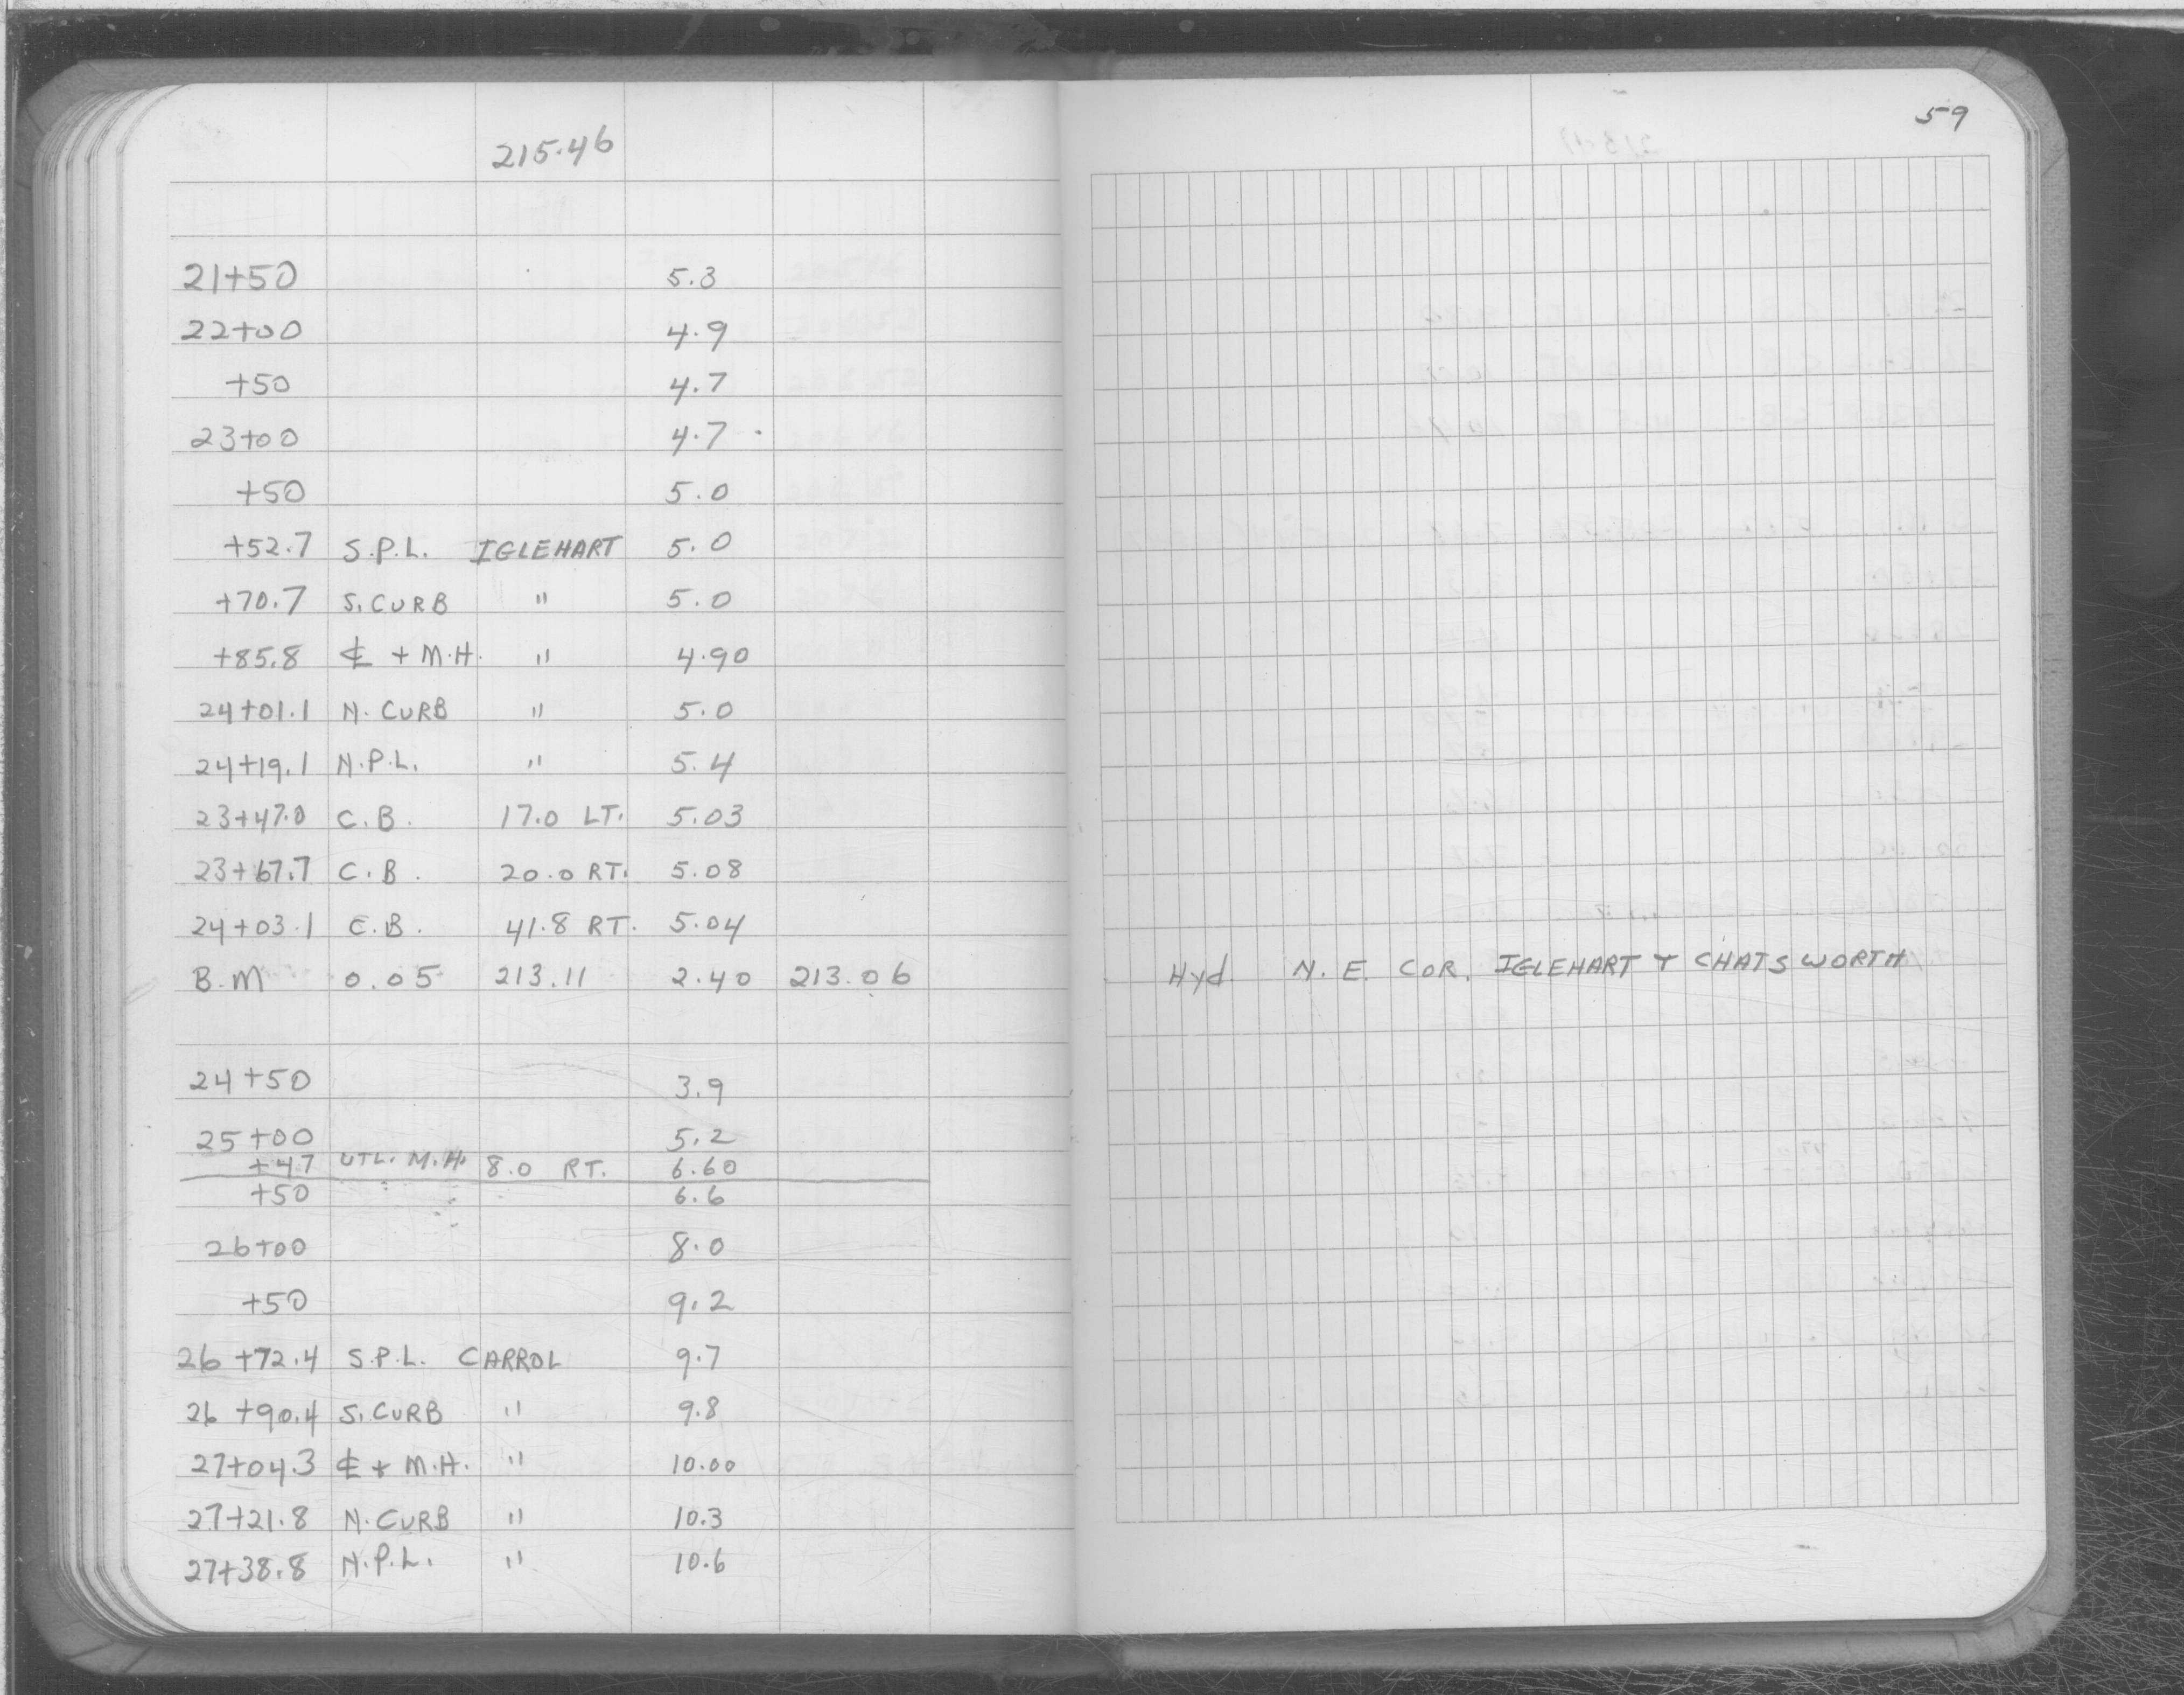 215.46
21+50 5.3
22+00 4.9
+50 4.7
23+00 4.7
+50 5.0
+52.7 S.P.L. IGLEHART 5.0
+70.7 S. CURB " 5.0
+85.8 ℄ + M.H. " 4.90
24+01.1 N. CURB " 5.0
24+19.1 N.P.L. " 5.4
23+47.0 C.B. 17.0 LT. 5.03
23+67.7 C.B. 20.0 RT. 5.08
24+03.1 C.B. 41.8 RT. 5.04
B.M 0.05 213.11 2.40 213.06
24+50 3.9
25+00 5.2
+47 UTL. M.H. 8.0 RT. 6.60
+50 6.6
26+00 8.0
+50 9.2
26+72.4 S.P.L. CARROL 9.7
26+90.4 S. CURB " 9.8
27+04.3 ℄ + M.H. " 10.00
27+21.8 N. CURB " 10.3
27+38.8 N.P.L. " 10.6
59
Hyd. N. E. COR. IGLEHART + CHATSWORTH